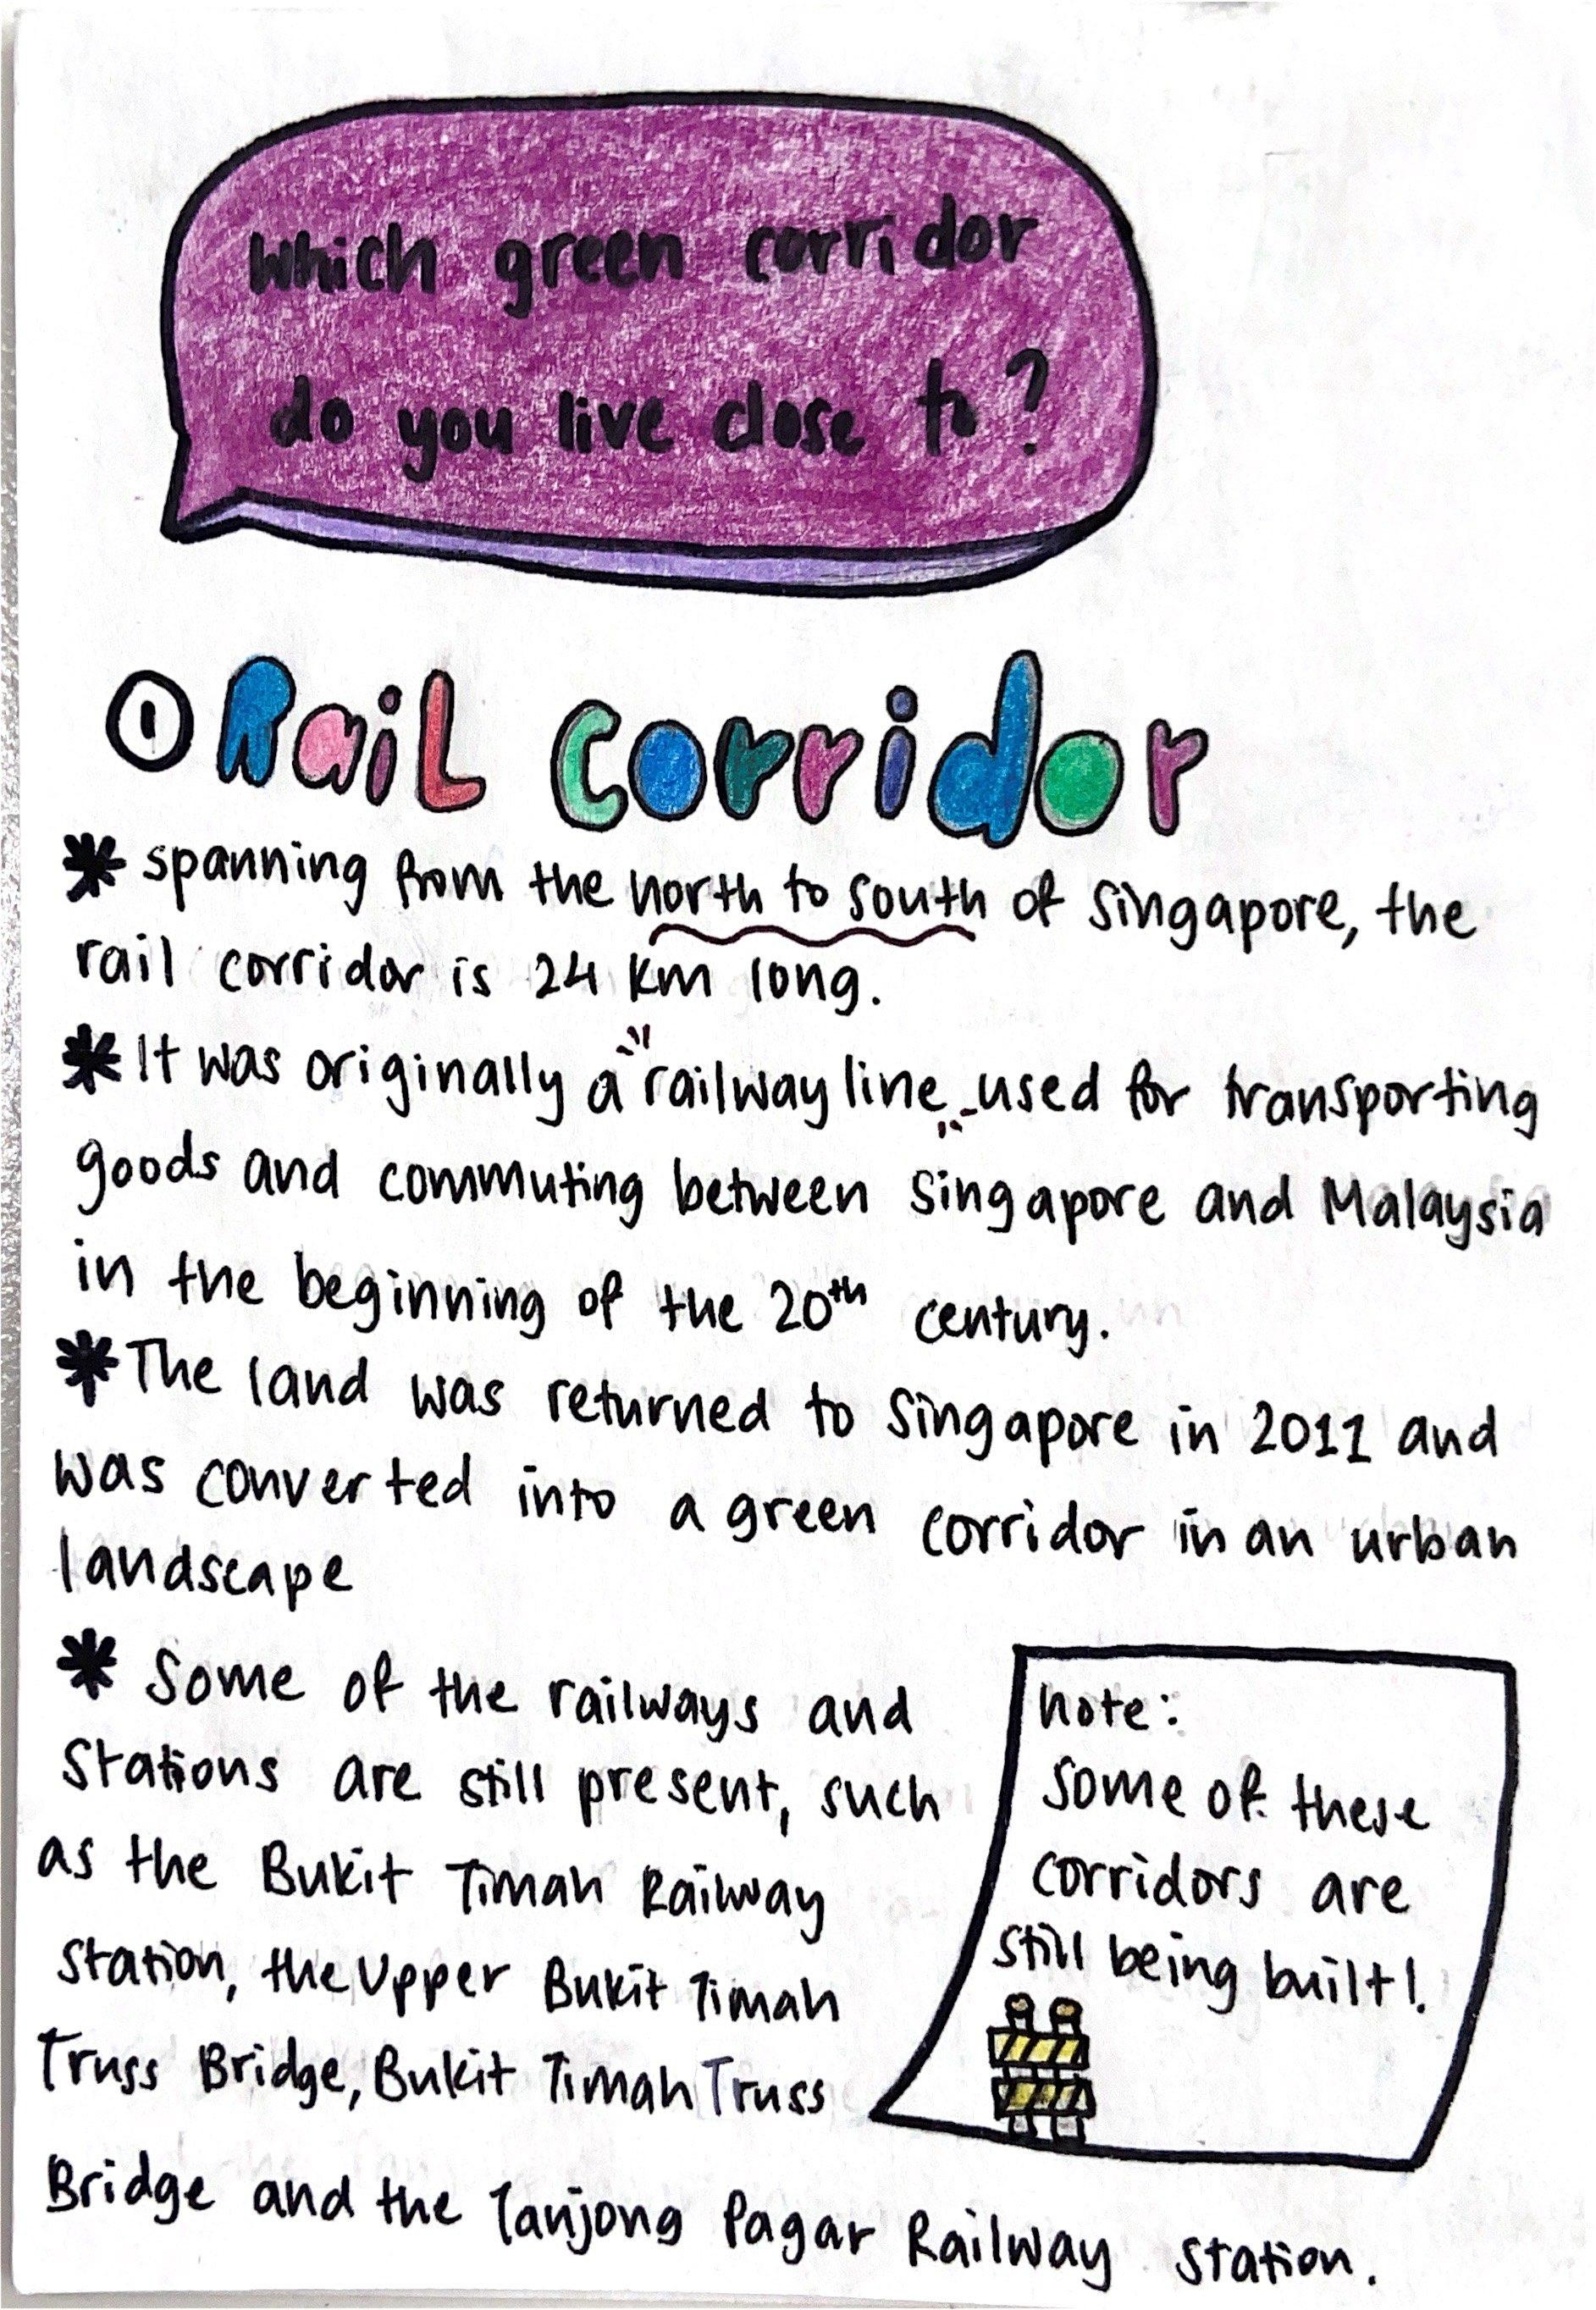 Which green corridor
do you live close to?
① Rail Corridor
* spanning from the north to south of Singapore, the
rail corridor is 24 km long.
* It was originally a railway line used for transporting
goods and commuting between Singapore and Malaysia
in the beginning of the 20th century.
* The land was returned to Singapore in 2011 and
was converted into a green corridor in an urban
landscape
* Some of the railways and
stations are still present, such
as the Bukit Timah Railway
Station, the Upper Bukit Timah
Truss Bridge, Bukit Timah Truss
Bridge and the Tanjong Pagar Railway Station.
note:
some of these
corridors are
still being built!